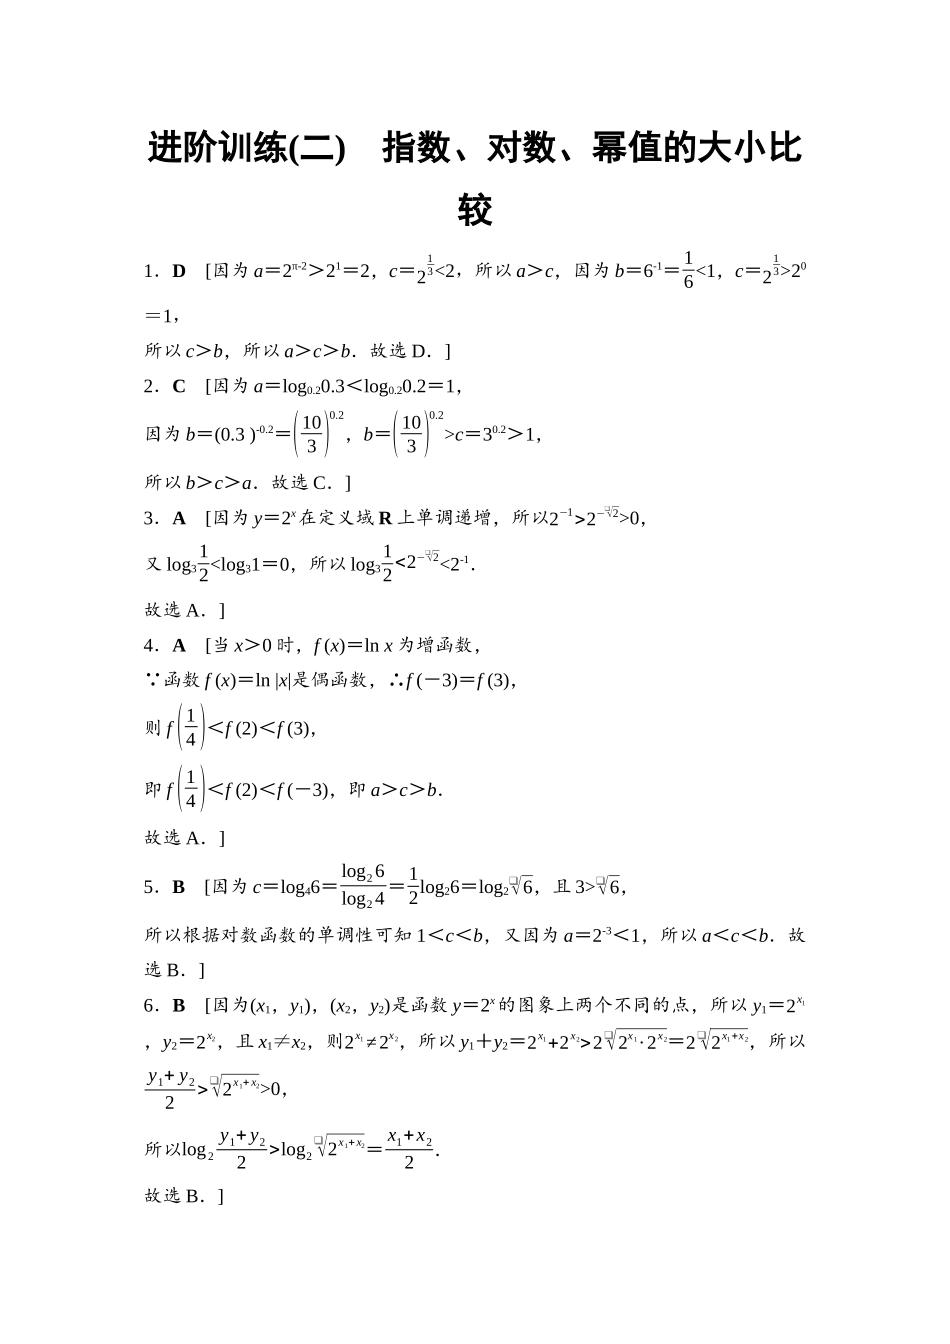 进阶训练(二)　指数、对数、幂值的大小比
较
1．D　[因为 a＝2^{π-2}＞2^1＝2，c＝2^{1/3}<2，所以 a＞c，因为 b＝6^{-1}＝1/6<1，c＝2^{1/3}>2^0
＝1，
所以 c＞b，所以 a＞c＞b．故选 D．]
2．C　[因为 a＝log_{0.2}0.3＜log_{0.2}0.2＝1，
因为 b＝(0.3 )^{-0.2}＝(10/3)^{0.2}，b＝(10/3)^{0.2}>c＝3^{0.2}＞1，
所以 b＞c＞a．故选 C．]
3．A　[因为 y＝2^x 在定义域 R 上单调递增，所以 2^{−1}>2^{−√2}>0，
又 log_3 1/2<log_3 1＝0，所以 log_3 1/2<2^{−√2}<2^{-1}．
故选 A．]
4．A　[当 x＞0 时，f (x)＝ln x 为增函数，
∵函数 f (x)＝ln |x|是偶函数，∴f (－3)＝f (3)，
则 f (1/4)＜f (2)＜f (3)，
即 f (1/4)＜f (2)＜f (－3)，即 a＞c＞b．
故选 A．]
5．B　[因为 c＝log_4 6＝log_2 6/log_2 4＝1/2 log_2 6＝log_2 √6，且 3>√6，
所以根据对数函数的单调性可知 1＜c＜b，又因为 a＝2^{-3}＜1，所以 a＜c＜b．故
选 B．]
6．B　[因为(x_1，y_1)，(x_2，y_2)是函数 y＝2^x 的图象上两个不同的点，所以 y_1＝2^{x_1}
，y_2＝2^{x_2}，且 x_1≠x_2，则 2^{x_1}≠2^{x_2}，所以 y_1＋y_2＝2^{x_1}+2^{x_2}>2√(2^{x_1}·2^{x_2})＝2√(2^{x_1+x_2})，所以
(y_1+y_2)/2>√(2^{x_1+x_2})>0，
所以 log_2 (y_1+y_2)/2>log_2 √(2^{x_1+x_2})＝(x_1+x_2)/2．
故选 B．]